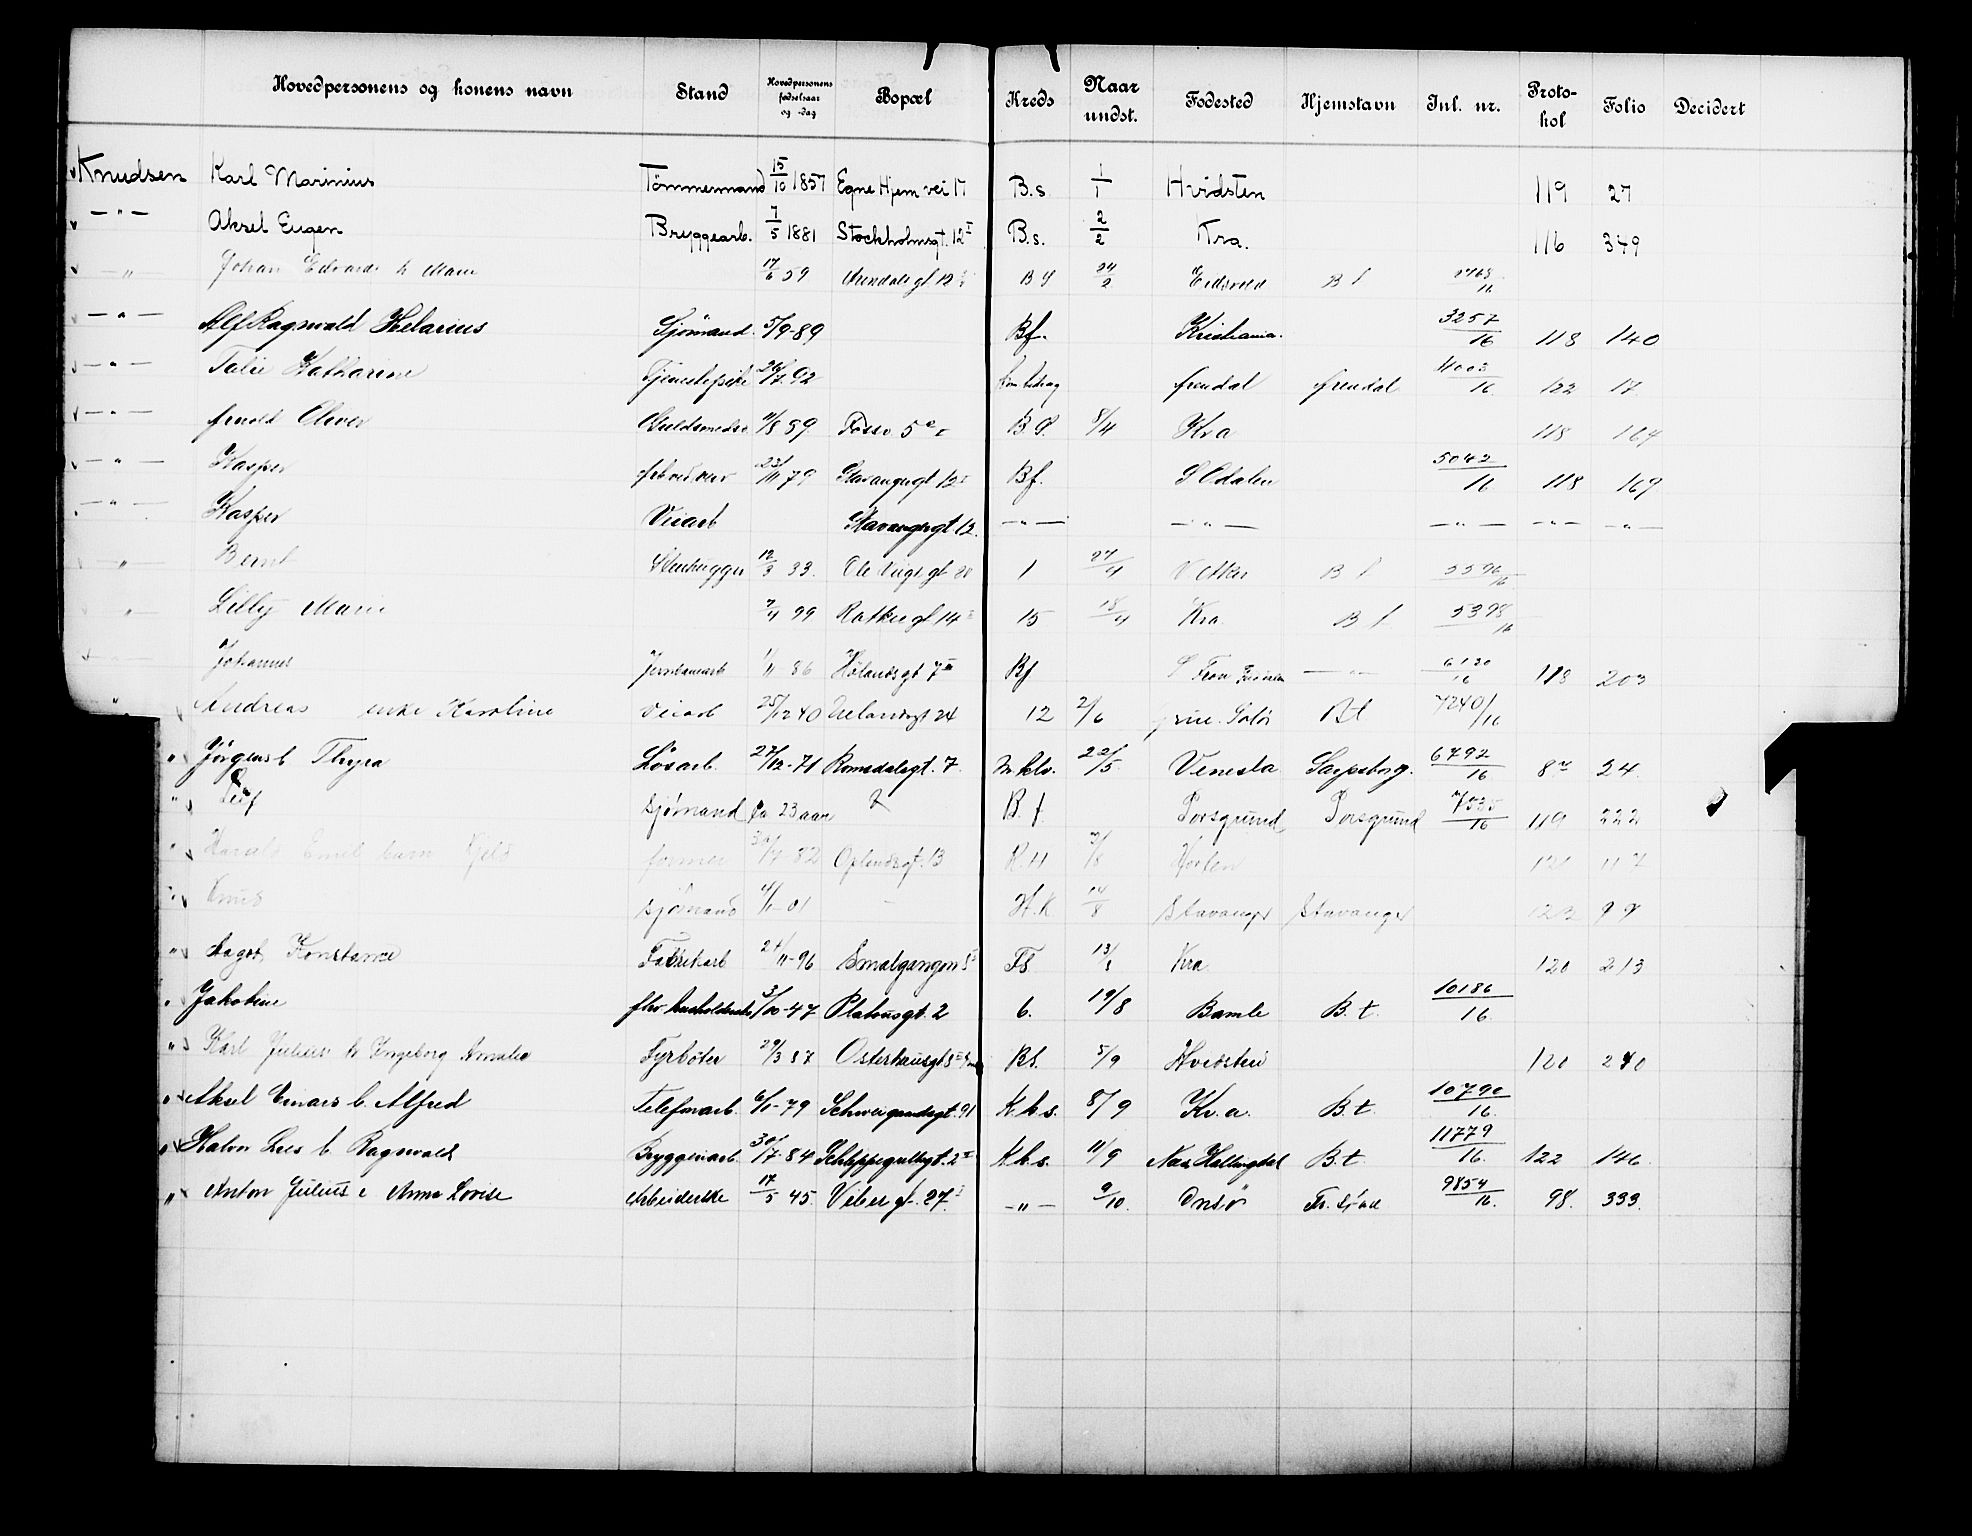 Hovedpersonens og konens navn Stand Hovedpersonens fødselsaar og -dag Bopæl Kreds Naar undst. Fødested Hjemstavn Inl. nr. Proto-kol Folio Decidert
Knudsen Karl Marinius Tømmermand 15/10 1857 Egne Hjem vei 17 B.s. 1/1 Hvidsten 119 27
— " — Aksel Eugen Bryggearb. 7/5 1881 Stockholmsgt. 12 I B.s. 2/2 Kra. 116 349
— " — Johan Edvards h Marie 17/6 59 Arendalsgt 12 B f 24/2 Eidsvold B f /16
— " — Alf Ragnvald Helarius Sjömand. 5/9-89 Bf. Kristiania. 3257/16 118 140
— " — Talie Katharine Tjenestepike /7-92 Arendal Arendal 4003/16 122 17
— " — Arnold Oliver Guldsmedsv. 11/8 59 Fossv. 5 B.f. 8/4 Kra 118 164
— " — Kasper 23/11 79 Stavangergt 12 I Bf. S Odalen 5042/16 118 169
— " — Kasper Veiarb Stavangergt 12. — " — — " — — " — — " — — " —
" Bernt Stenhugger 12/3 33. Ole Vigs gt 20 1 27/4 V Aker B f 5596/16
" Lilly Marie 7/4 99 Ratkes gt 14 15 18/4 Kra B f 5398/16
Johannes 1/11 86 Hølandsgt 7 III Bf S Fron — " — 6120/16 118 203
" Andreas enke Karoline Veiarb 25/12 40 gt 24 12 2/6 Solør Bt 7240/16
" Jörgens b Thyra Lösarb. 27/12-71 Romsdalsgt. 7. 22/5 Venesla Sarpsborg. 6792/16 8 24
" Leif sjömand Ca 23 aar B. f. Porsgrund Porsgrund 7535/16 119 222
" Harald Emil barn Kjeld former /7-82 Oplandsgt. 13 K.H 3/8 Horten 121 117
" Knud sjömand 4/1-01 — H.K 14/8 Stavanger Stavanger 123 99
" Dagob. Konstance Fabrikarb 21/11-96 Smalgangen 5 I Fs 13/8 Kra. 120 213
" Jakobine fhv husholderske 3/10-47 Platousgt. 2 6. 19/8 Bamle B. t. 10186/16
" Karl Julius h Ingeborg Amalie Fyrböter 29/3 87 Osterhausgt 8 Bf. 5/9 Hvidsten 120 240
" Aksel Einars b. Alfred Telefonarb. 6/1-79 Schweigaardsgt. 91 K.b.s. 8/9 Kr.a. B.t. 10790/16
" Halvor Lies b. Ragnvald Bryggeriarb. 30/7-84 Schleppegrellsgt. 2 II K.b.s. 11/9 Næs Hallingdal B.t. 11779/16 122 146
" Anton Julius e Anna Lovise Arbeiderske 17/5 45. Vibes gt. 27 I — " — 9/10. Onsö Fr. stad 9854/16 98. 333.